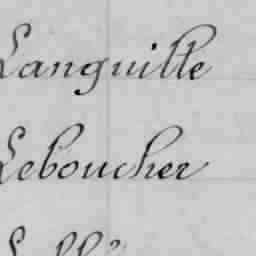 Languille
Leboucher